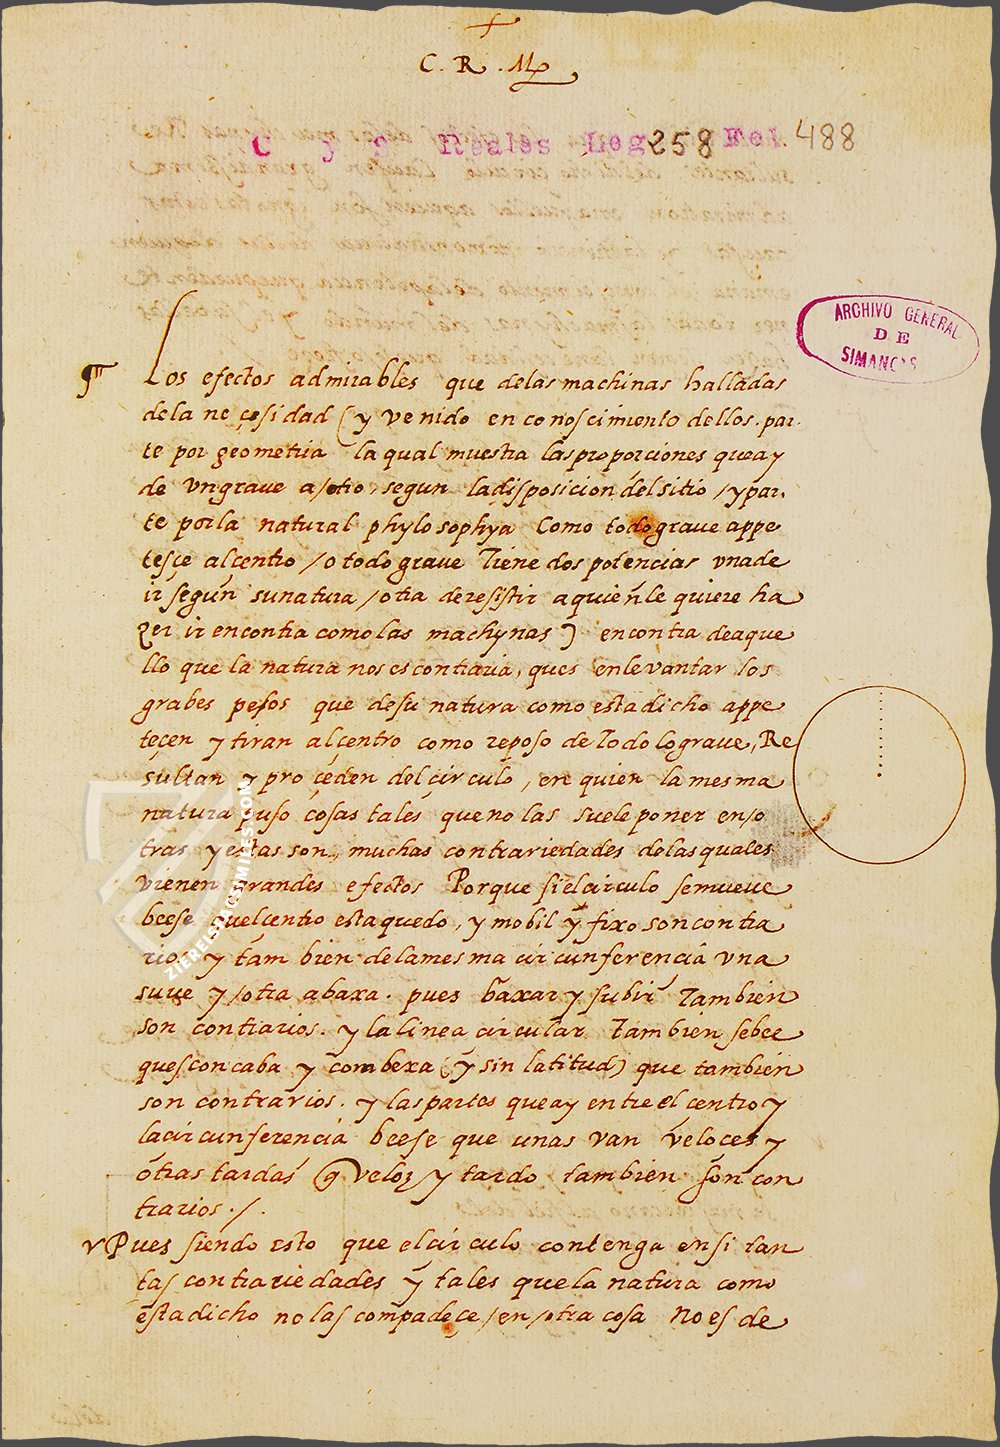 C. R. M.
C y S Reales Leg 258 Fol. 488
ARCHIVO GENERAL
DE
SIMANCAS
Los efectos admirables que delas machinas halladas
dela neçesidad (y venido en conoscimiento dellos. par.
te por geometria la qual muestra las proporciones que ay
de vn graue a /otro, segun la disposicion del sitio / y par.
te por la natural phylosophya Como todo graue appe
tesçe al çentro / o todo graue Tiene dos potencias vna de
ir segun su natura / otra de resistir a quien le quiere ha
zer ir en contra como las machynas) en contra de aque
llo que la natura nos es contraria, ques en levantar los
grabes pesos que de su natura como esta dicho appe
teçen y tiran al çentro como reposo de Todo lo graue, Re
sultan y proçeden del circulo, en quien la mesma
natura puso cosas tales que no las suele poner en /o
tras y estas son, muchas contrariedades de las quales
vienen grandes efectos Porque si el circulo se mueue
beese quel çentro esta quedo, y mobil y fixo son contra
rios y tam bien de la mesma circunferencia vna
suue y /otra abaxa. pues baxar y subir Tambien
son contrarios. y la linea circular Tambien se bee
ques concaba y combexa (y sin latitud) que tambien
son contrarios. y las partes que ay entre el çentro y
la circunferencia beese que unas van veloces y
otras tardas q veloz y tardo tambien son con
trarios. /.
Pues siendo esto que el circulo contenga en si tan
tas contrariedades y tales que la natura como
esta dicho no las compadeçe / en /otra cosa No es de
ZIEREIS FACSIMILES.COM